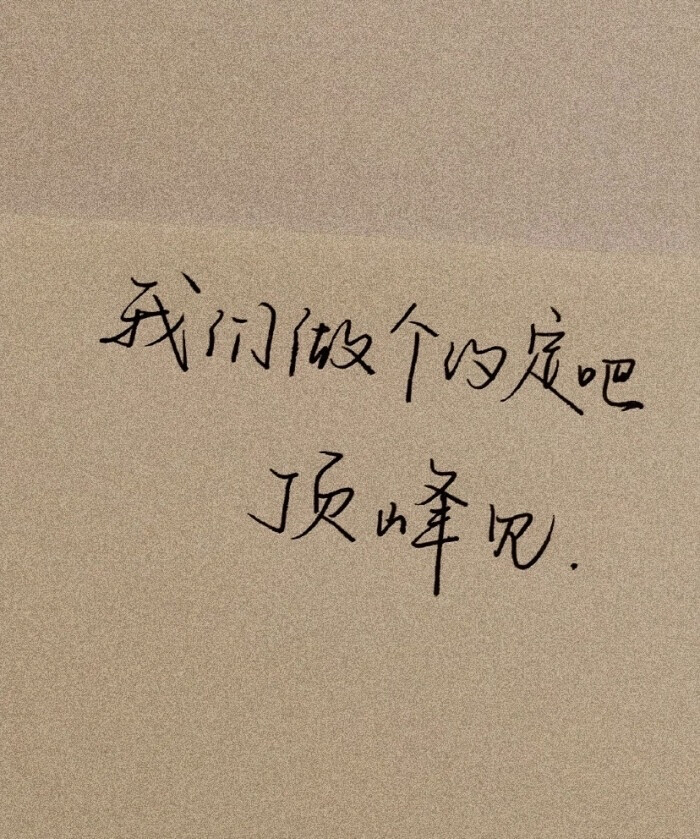 我们做个约定吧
顶峰见.